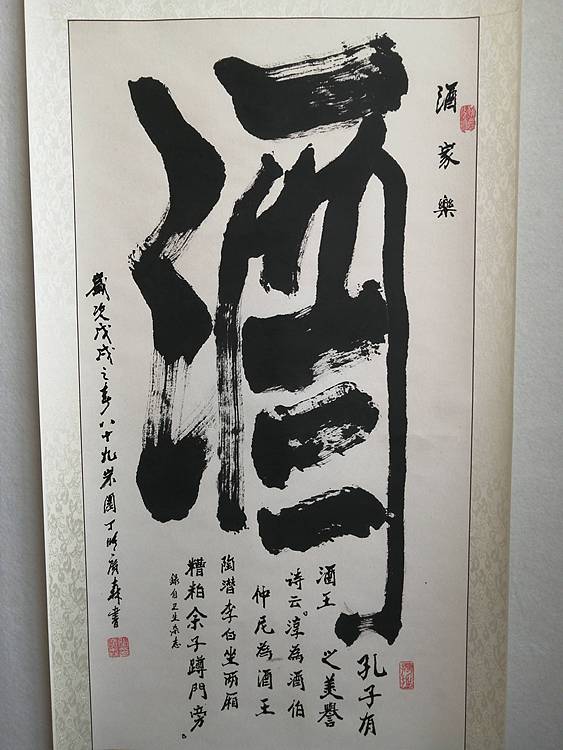 酒家樂
酒
孔子有
酒王之美譽
诗云。淳為酒伯
仲尼為酒王
陶潜李白坐兩厢
糟粕余子蹲門旁。
錄自卫生杂志
歲次戊戌之春八十九岁園丁時廣森書